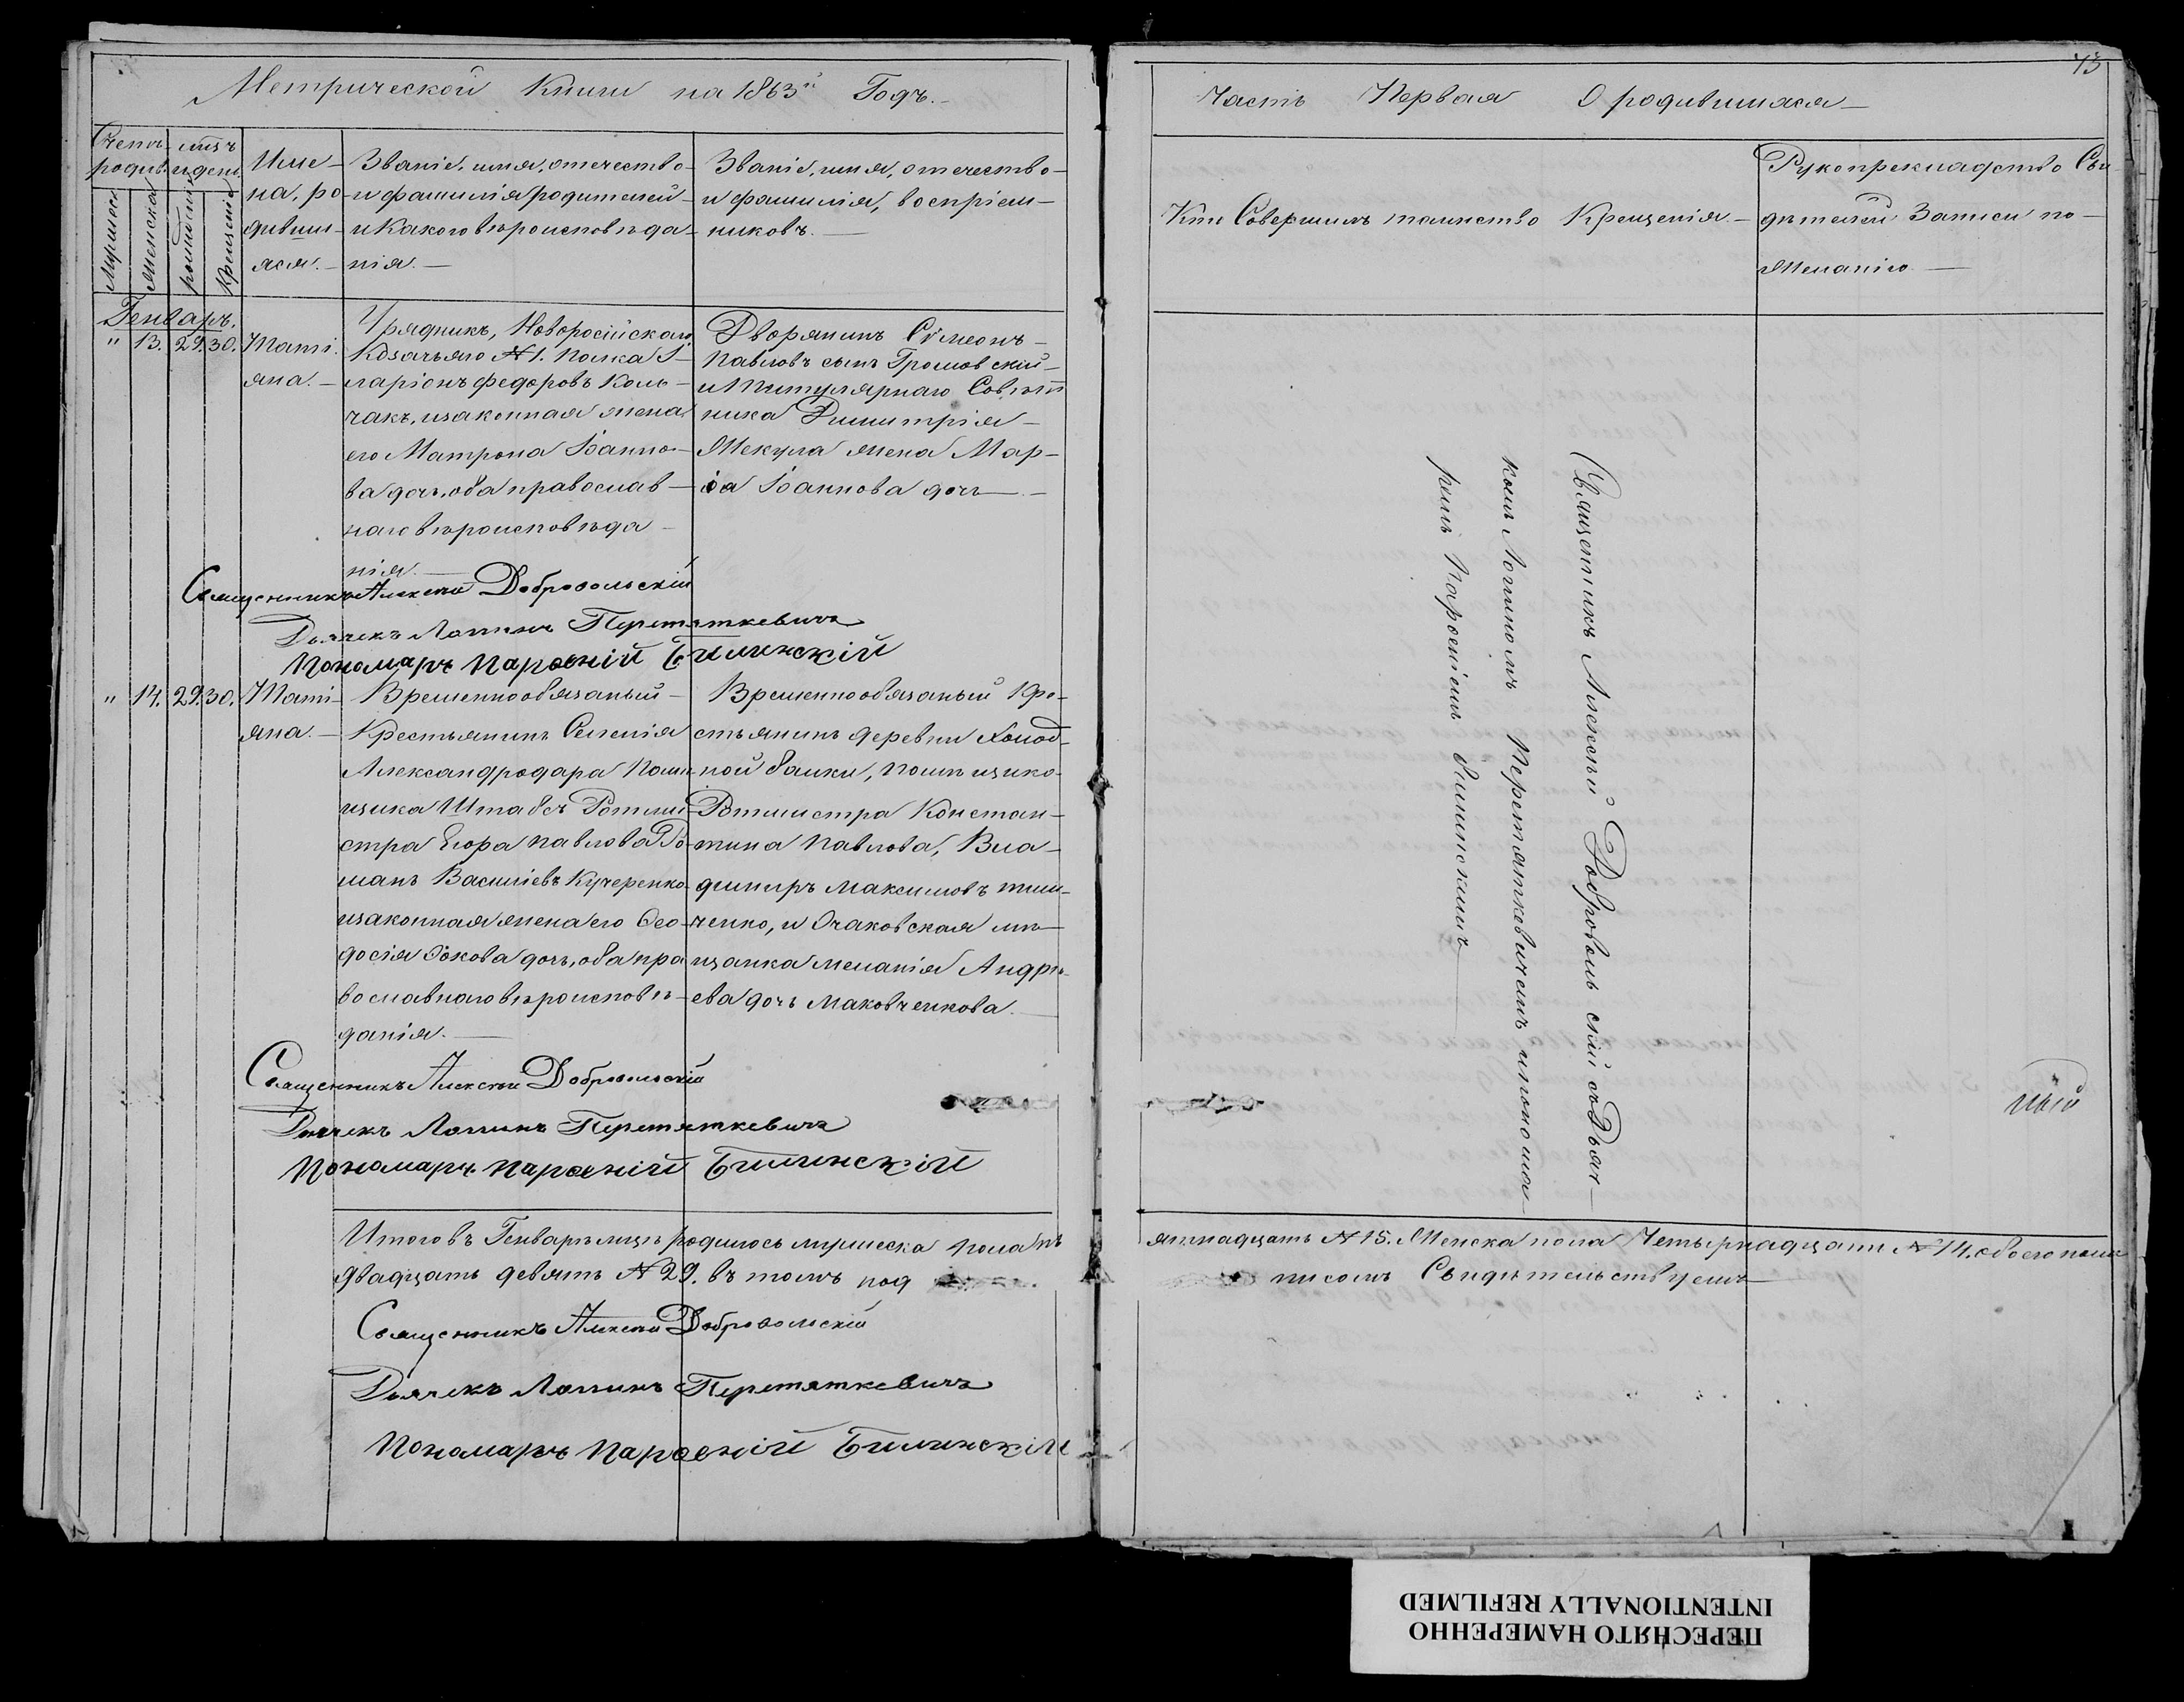 Метрической Книги на 1863й Годъ.
Часть Первая О родившихся
43
Счетъ родив.
мцъ и день
Мужеска
Женска
рожденія
Крещенія
Име-
на, ро-
дивши-
яся.
Званіе, имя, отечество
и фамилія родителей
и Какого вѣроисповѣда-
нія.
Званіе, имя, отечество
и фамилія, воспріем-
никовъ.
Кто Совершилъ таинство Крещенія
Рукоприкладство Сви-
дѣтелей Записи по
Желанію
Генварь.
" 13. 29. 30.
Таті-
яна.
Урядникъ, Новоросійскаго
Козачьяго №1. Полка І-
ларіонъ Федоровъ Коль-
чакъ, изаконная жена
его Матрона Іоанно-
ва дочь, оба православ-
наго вѣроисповѣда-
нія.
Дворянинъ Сѵмеонъ
Павловъ сынъ Громовскій
и Титулярнаго Совѣт
ника Димитрія
Жекула жена Мар-
іа Іоаннова дочь
Священникъ Алексѣй Добровольскій
Дьячекъ Логинъ Перетяткевичъ
Пономарь Парѳеній Билинскій
" 14. 29. 30.
Таті-
яна.
Временнообязаный
Крестьянинъ Селенія
Александродара Помѣ-
щика Штабсъ Ротми-
стра Егора Павлова Ро-
манъ Василіевъ Кучеренко
изаконная жена его Ѳео-
досія Іокова дочь, оба пра
вославнаго вѣроисповѣ-
данія.
Временнообязаный Кре-
стьянинъ деревни Холод-
ной балки, помѣщика
Ротмистра Констан-
тина Павлова, Вла-
димиръ Максимовъ Тим-
ченко, и Очаковская мѣ-
щанка Меланія Андрѣ-
ева дочь Маковченкова.
Священникъ Алексѣй Добровольскій
Дьячекъ Логинъ Перетяткевичъ
Пономарь Парѳеній Билинскій
Священникъ Алексѣй Доброволь скій съ Дьяч-
комъ Логиномъ Перетяткевичемъ ипонома-
ремъ Парѳеніемъ Билинскимъ
ный
Итого въ Генварѣ мцѣ родилось мужеска пола пя
ятнадцать №15. Женска пола Четырнадцать №14. обоего пола
двадцать девять №29. въ томъ под
писомъ Свидѣтельствуемъ
Священникъ Алексѣй Добровольскій
Дьячекъ Логинъ Перетяткевичъ
Пономарь Парѳеній Билинскій
ПЕРЕСНЯТО НАМЕРЕННО
INTENTIONALLY REFILMED